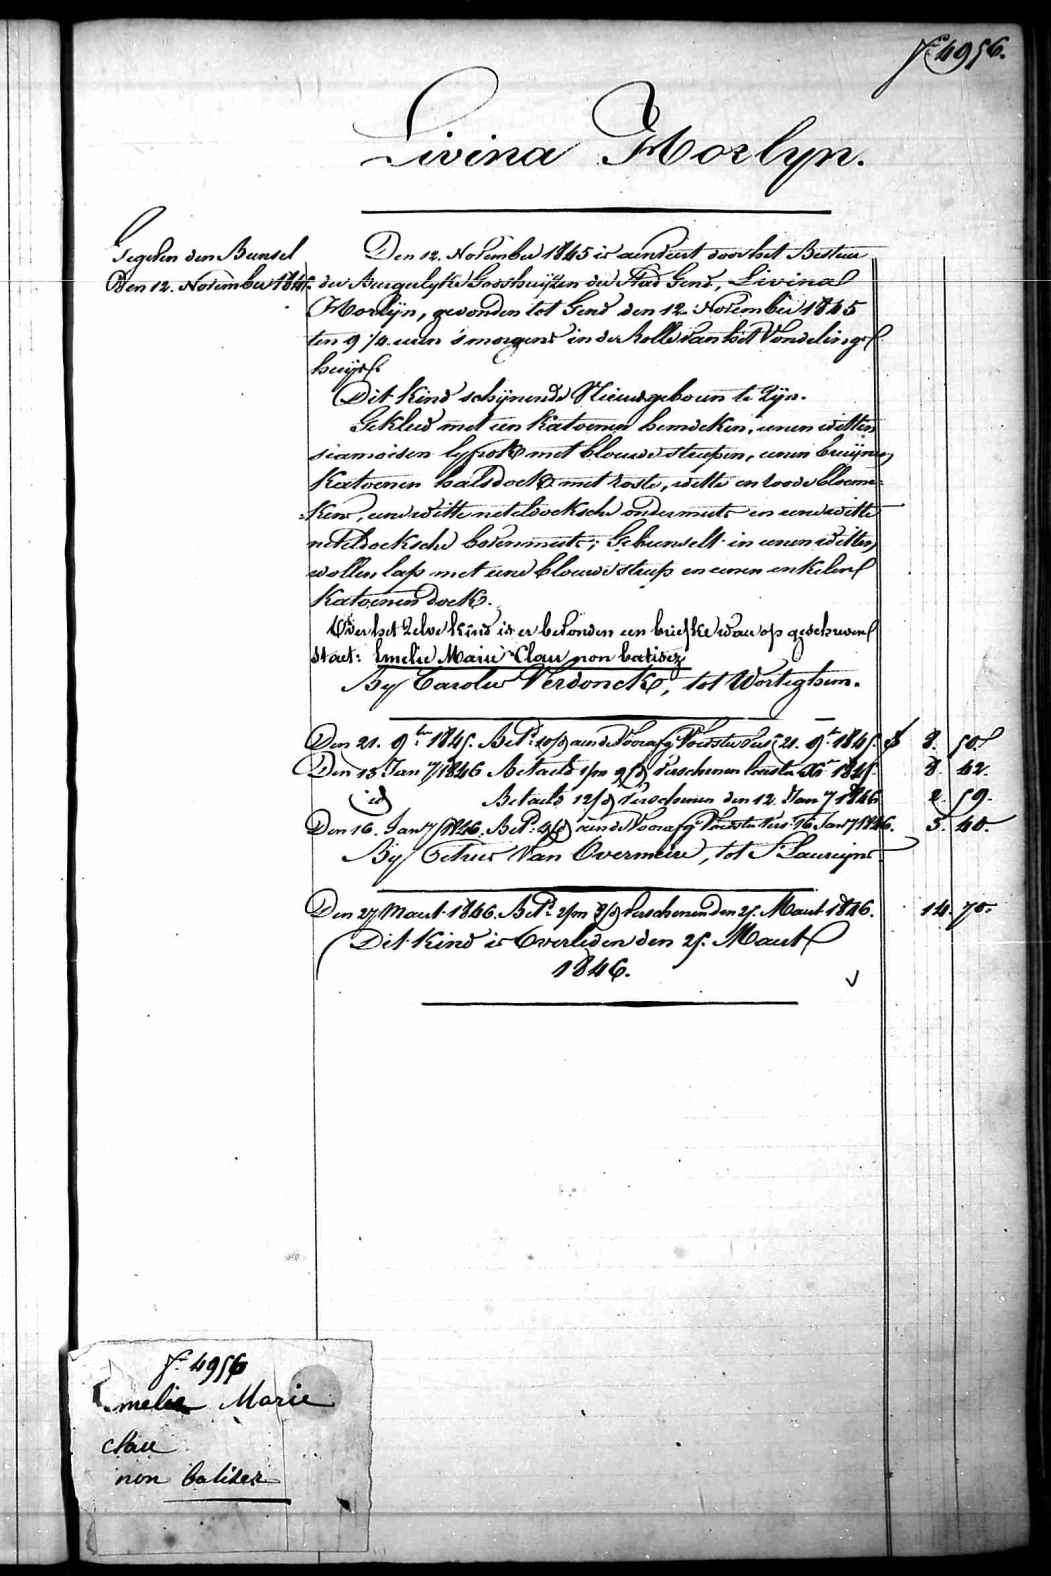 f° 4956.
Livina Horlyn.
Gegeven den Bunsel
Den 12. November 1845.
Den 12. November 1845 is aenveert door het Bestuer
der Burgerlyke Godshuijzen der Stad Gend, Livina
Horlijn, gevonden tot Gend den 12. November 1845
ten 9 1/4 uren 's morgens in de Rolle van het Vondelings
huijs.
Dit kind schijnende Nieuwgeboren te Zijn.
Gekleed met een Katoenen hemdeken, eenen witten
siamoisen lyfrok met blouwe streepen, eenen bruijnen
Katoenen halsdoek met roste, witte en roode bloeme=
=kens, eene witte neteldoeksche ondermuts en eene witte
neteldoeksche bovenmuts; Gebunselt in eenen witten
wollen lap met eene blouwe streep en eenen enkelen
Katoenen doek.
Over het Zelve kind is er bevonden een briefke waer op geschreven
staet: Emelie Marie Clau non batisez
By Carolus Verdonck, tot Worteghem.
Den 21. 9ber 1845. Betd. aen de Voorafg. Voedster Vers. 21. 9r 1845. 8. 50.
Den 15 Jany 1846 Betaeld 1/m 9/d Verschenen laesten Xr 1845. 8. 42.
id Betaeld 12/d Verschenen den 12 Jany 1846 2. 59.
Den 16. Jany 1846. Betd. 4/d aen de Voorafg. Voedster Vers. 16 Jany 1846. 5. 40.
Bij Petrus Van Overmeire, tot St Laureyns
Den 27 Maert 1846. Betd. 2/m 8/d Verschenen den 25. Maert 1846. 14. 70.
Dit kind is Overleden den 25. Maert
1846.
f° 4956
Emelie Marie
clau
non batisez